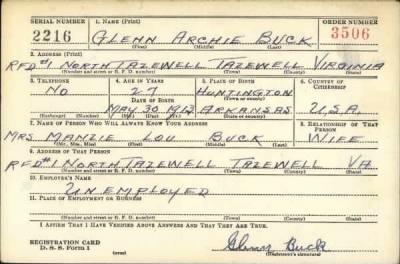 SERIAL NUMBER 1. NAME (Print) ORDER NUMBER
2216 GLENN ARCHIE BUCK 3506
(First) (Middle) (Last)
2. ADDRESS (Print)
RFD#1 NORTH TAZEWELL TAZEWELL VIRGINIA
(Number and street or R. F. D. number) (Town) (County) (State)
3. TELEPHONE 4. AGE IN YEARS 5. PLACE OF BIRTH 6. COUNTRY OF CITIZENSHIP
NO 27 HUNTINGTON
DATE OF BIRTH (Town or county)
MAY 30 1913 ARKANSAS U.S.A.
(Exchange) (Number) (Mo.) (Day) (Yr.) (State or country)
7. NAME OF PERSON WHO WILL ALWAYS KNOW YOUR ADDRESS 8. RELATIONSHIP OF THAT PERSON
MRS MANZIE LOU BUCK WIFE
(Mr., Mrs., Miss) (First) (Middle) (Last)
9. ADDRESS OF THAT PERSON
RFD#1 NORTH TAZEWELL TAZEWELL VA
(Number and street or R. F. D. number) (Town) (County) (State)
10. EMPLOYER'S NAME
UNEMPLOYED
11. PLACE OF EMPLOYMENT OR BUSINESS
(Number and street or R. F. D. number) (Town) (County) (State)
I AFFIRM THAT I HAVE VERIFIED ABOVE ANSWERS AND THAT THEY ARE TRUE.
REGISTRATION CARD
D. S. S. Form 1 (over) Glenn Buck
(Registrant's signature)